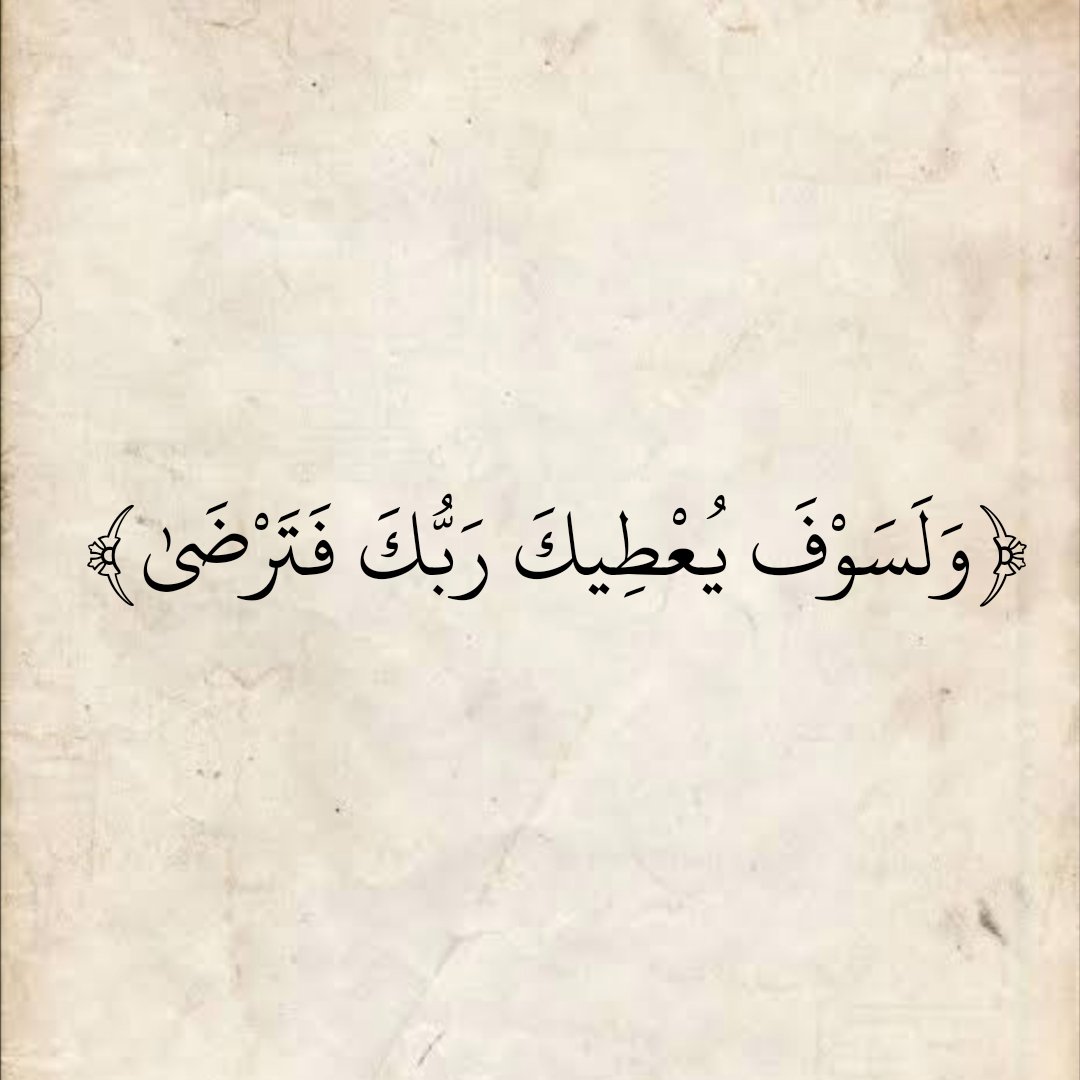 ﴿وَلَسَوْفَ يُعْطِيكَ رَبُّكَ فَتَرْضَىٰ﴾